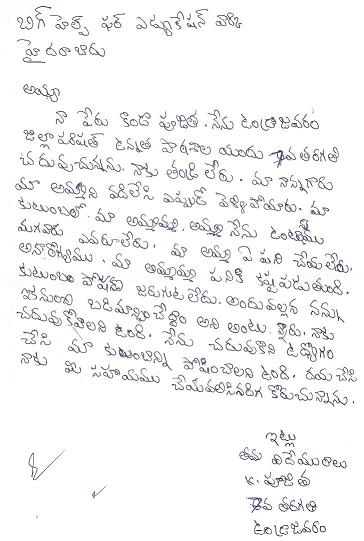 బిగ్ హెల్ప్ ఫర్ ఎడ్యుకేషన్ వారికి
హైదరాబాదు
అయ్యా
నా పేరు కొండా పూజిత. నేను ఉండ్రాజవరం
జిల్లా పరిషత్ ఉన్నత పాఠశాల యందు 7వ తరగతి
చదువుచున్నాను. నాకు తండ్రి లేరు. మా నాన్నగారు
మా అమ్మని వదిలేసి ఎప్పుడో వెళ్ళిపోయారు. మా
కుటుంబంలో మా అమ్మమ్మ, అమ్మ నేను ఉంటాము
మగవారు ఎవరూలేరు. మా అమ్మ ఏ పని చేయలేదు.
అనారోగ్యము. మా అమ్మమ్మ పనికి కష్టపడుతుంది.
కుటుంబం పోషణ జరుగుటలేదు. అందువల్లన నన్ను
ఇకనుంచి బడిమాన్పించేద్దాం అని అంటున్నారు. నాకు
చదువుకోవాలని ఉంది. నేను చదువుకొని ఉద్యోగం
చేసి మా కుటుంబాన్ని పోషించాలని ఉంది. దయచేసి
నాకు మీ సహాయము చేయవలసినదిగ కోరుచున్నాను.
ఇట్లు
తమ విదేయురాలు
K. పూజిత
7వ తరగతి
ఉండ్రాజవరం